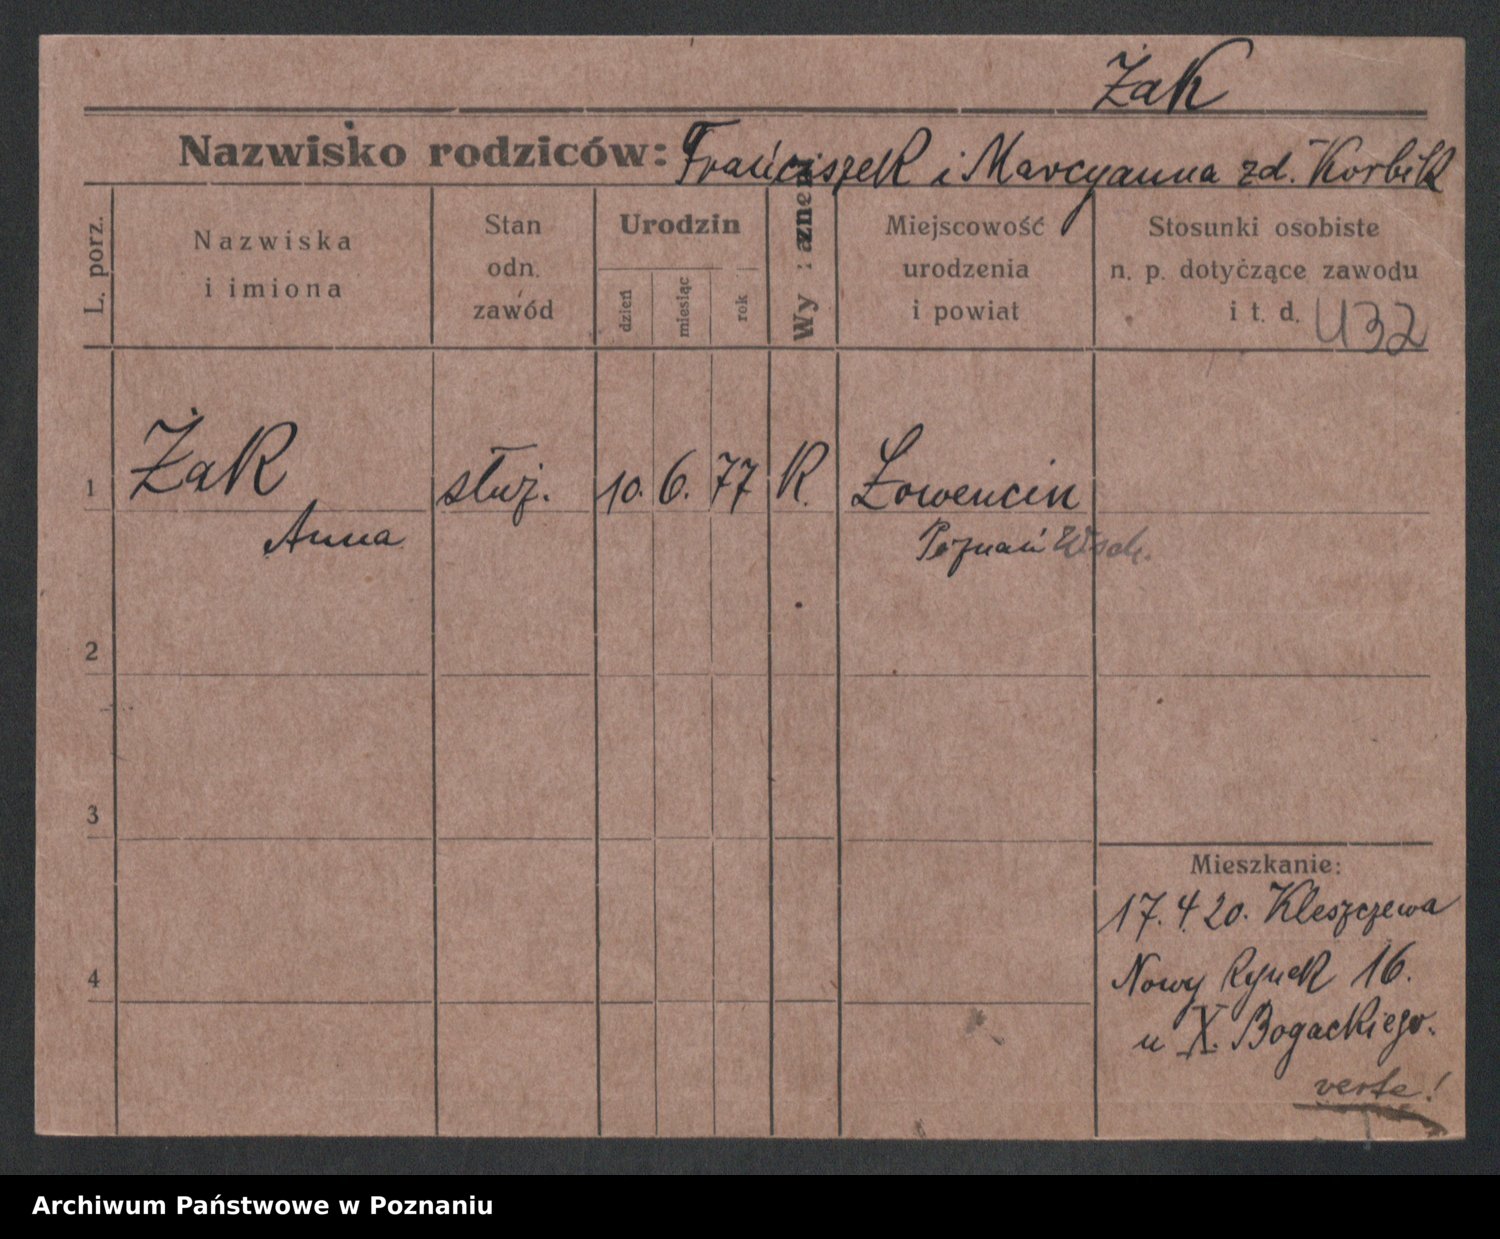 Żak
Nazwisko rodziców: Franciszek i Marcyanna zd. Korbik
L. porz.
Nazwiska
i imiona
Stan
odn.
zawód
Urodzin
dzień
miesiąc
rok
Wy : aznerz
Miejscowość
urodzenia
i powiat
Stosunki osobiste
n. p. dotyczące zawodu
i t. d. 432
1 Żak służ. 10. 6. 77 K. Łowencin
Anna Poznań Wsch.
2
3
4
Mieszkanie:
17.4.20. Kleszczewa
Nowy Rynek 16.
u X. Bogackiego.
verte!
Archiwum Państwowe w Poznaniu